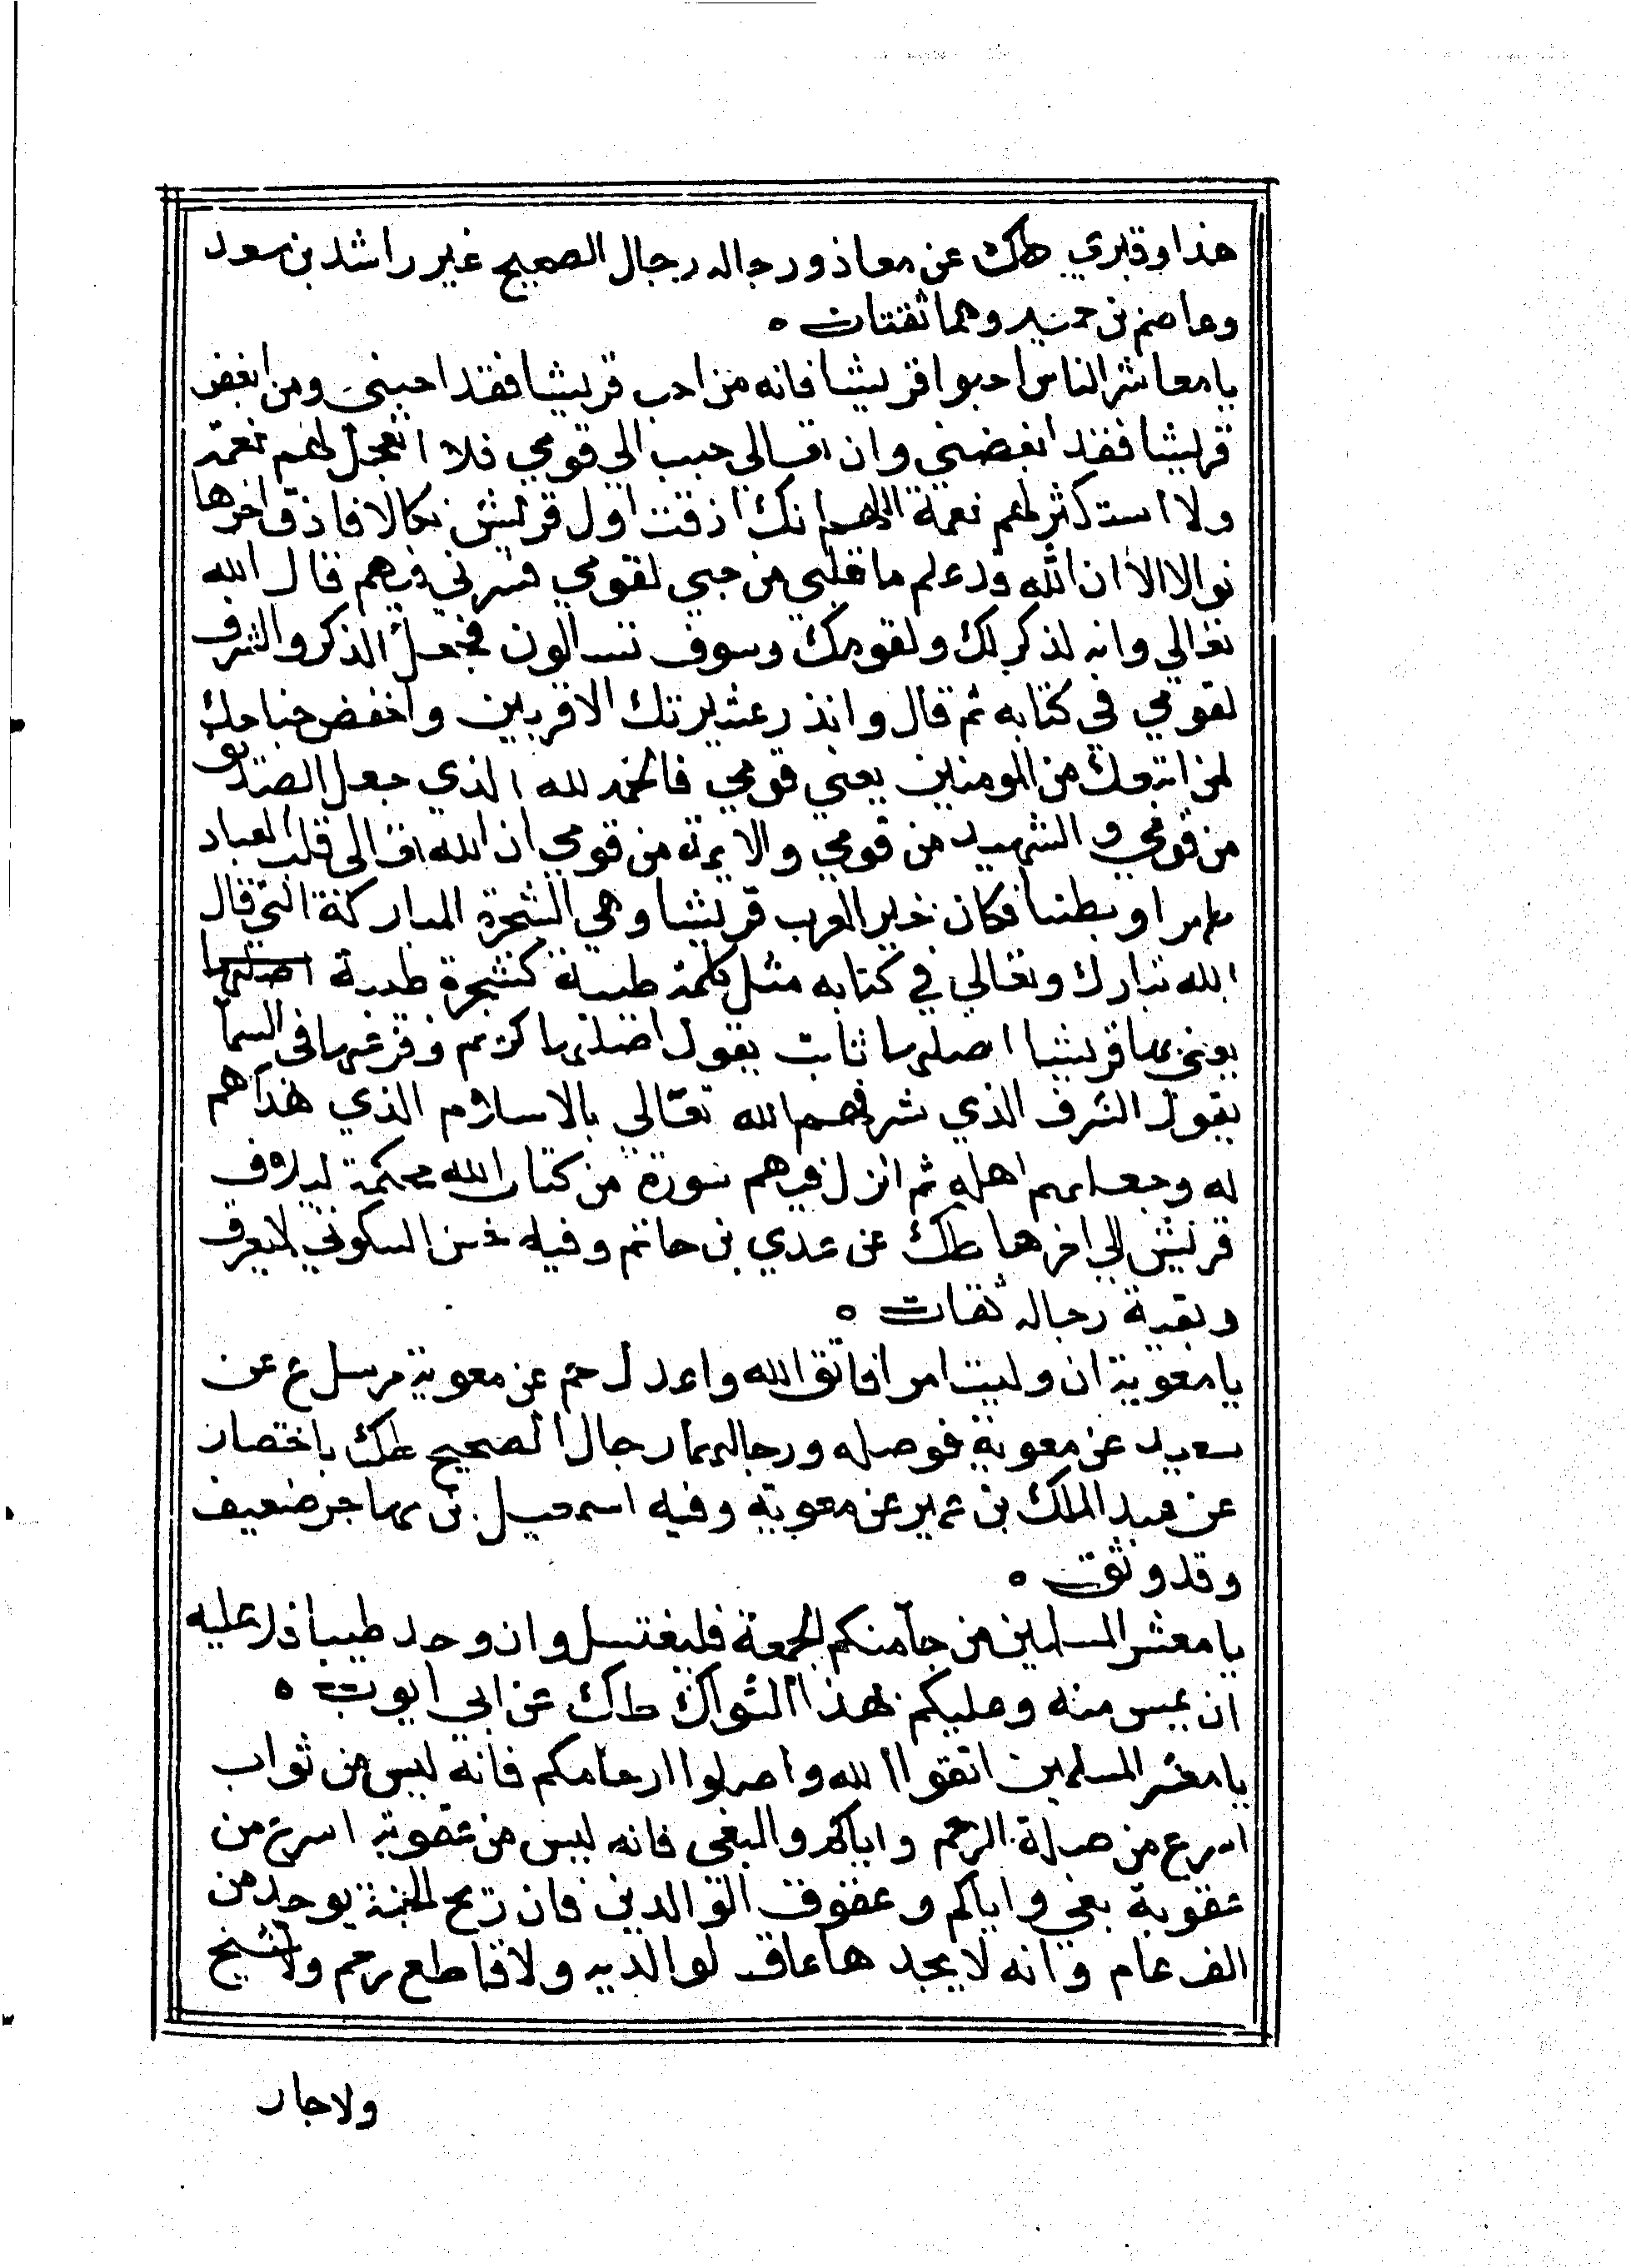 هذا وقبري طك عن معاذ ورجاله رجال الصحيح غير راشد بن سعد
وعاصم بن حميد وهما ثقتان ه
يا معاشر الناس احبوا قريشا فانه من احب قريشا فقد احبني ومن ابغض
قريشا فقد ابغضني وان الله تعالى حبب الي قومي فلا اتعجل لهم نعمة
ولا استكثر لهم نعمة اللهم انك اذقت اول قريش نكالا فاذق اخرها
نوالا الا ان الله قد علم ما في قلبي من حبي لقومي فسرني فيهم قال الله
تعالي وانه لذكر لك ولقومك وسوف تسالون فجعل الذكر والشرف
لقومي في كتابه ثم قال وانذر عشيرتك الاقربين واخفض جناحك
لمن اتبعك من المومنين يعني قومي فالحمد لله الذي جعل الصديق
من قومي والشهيد من قومي والايمة من قومي ان الله تعالى قلب العباد
ظهرا وبطنا فكان خير العرب قريشا وهي الشجرة المباركة التي قال
الله تبارك وتعالي في كتابه مثل كلمة طيبة كشجرة طيبة اصلها
يعني بها قريشا اصلها ثابت يقول اصلها كريم وفرعها في السما
يقول الشرف الذي شرفهم الله تعالي بالاسلام الذي هداهم
له وجعلهم اهله ثم انزل فيهم سورة من كتاب الله محكمة ليلاف
قريش الي اخرها طك عن عدي بن حاتم وفيه حسن السكوني لم يعرف
وبقية رجاله ثقات ه
يا معوية ان وليت امرا فاتق الله واعدل حم عن معوية مرسل ع عن
سعيد عن معوية فوصله ورجالهما رجال الصحيح طك باختصار
عن عبد الملك بن عمير عن معوية وفيه اسمعيل بن مهاجر ضعيف
وقد وثق ه
يا معشر المسلمين من جا منكم الجمعة فليغتسل وان وجد طيبا فلا عليه
ان يمس منه وعليكم بهذا السواك طك عن ابي ايوب ه
يا معشر المسلمين اتقوا الله واصلوا ارحامكم فانه ليس من ثواب
اسرع من صلة الرحم واياكم والبغي فانه ليس من عقوبة اسرع من
عقوبة بغي واياكم وعقوق الوالدين فان ريح الجنة يوجد من
الف عام وانه لا يجدها عاق لوالديه ولا قاطع رحم ولا شيخ
ولا جار